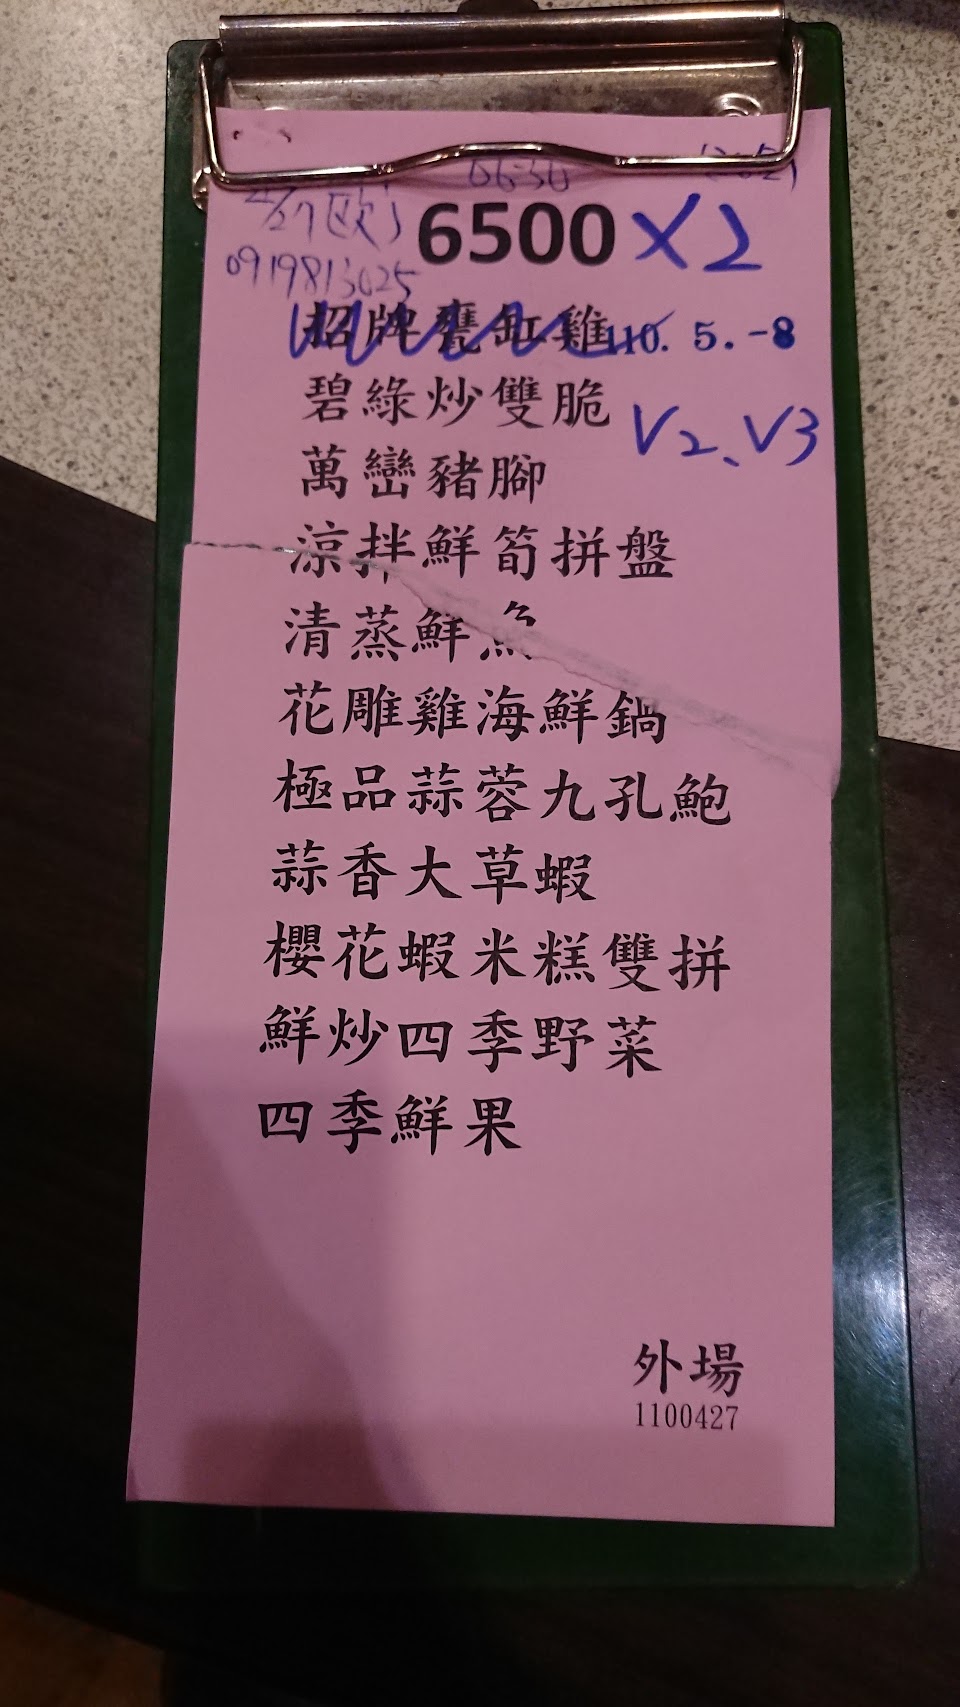 6500 X2
0919813025
招牌甕缸雞 110. 5. -8
碧綠炒雙脆
V2、V3
萬巒豬腳
涼拌鮮筍拼盤
清蒸鮮魚
花雕雞海鮮鍋
極品蒜蓉九孔鮑
蒜香大草蝦
櫻花蝦米糕雙拼
鮮炒四季野菜
四季鮮果
外場
1100427